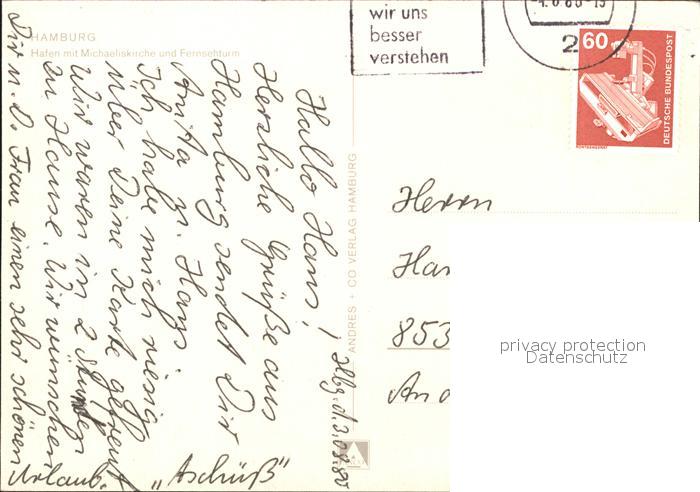 HAMBURG
Hafen mit Michaeliskirche und Fernsehturm
Hallo Hans!
Herzliche Grüße aus
Hamburg sendet Dir
Anita u. Hans
Ich habe mich riesig
über Deine Karte gefreut
Wir waren in 2 Stunden
zu Hause. Wir wünschen
Dir u. D. Frau einen sehr schönen
Urlaub. "Aschüß"
Hbg. d. 3.08.80
ANDRES + CO VERLAG HAMBURG
wir uns
besser
verstehen
-4.8.80-15
2
60
DEUTSCHE BUNDESPOST
RÖNTGENGERÄT
Herrn
Han
853
And
privacy protection
Datenschutz